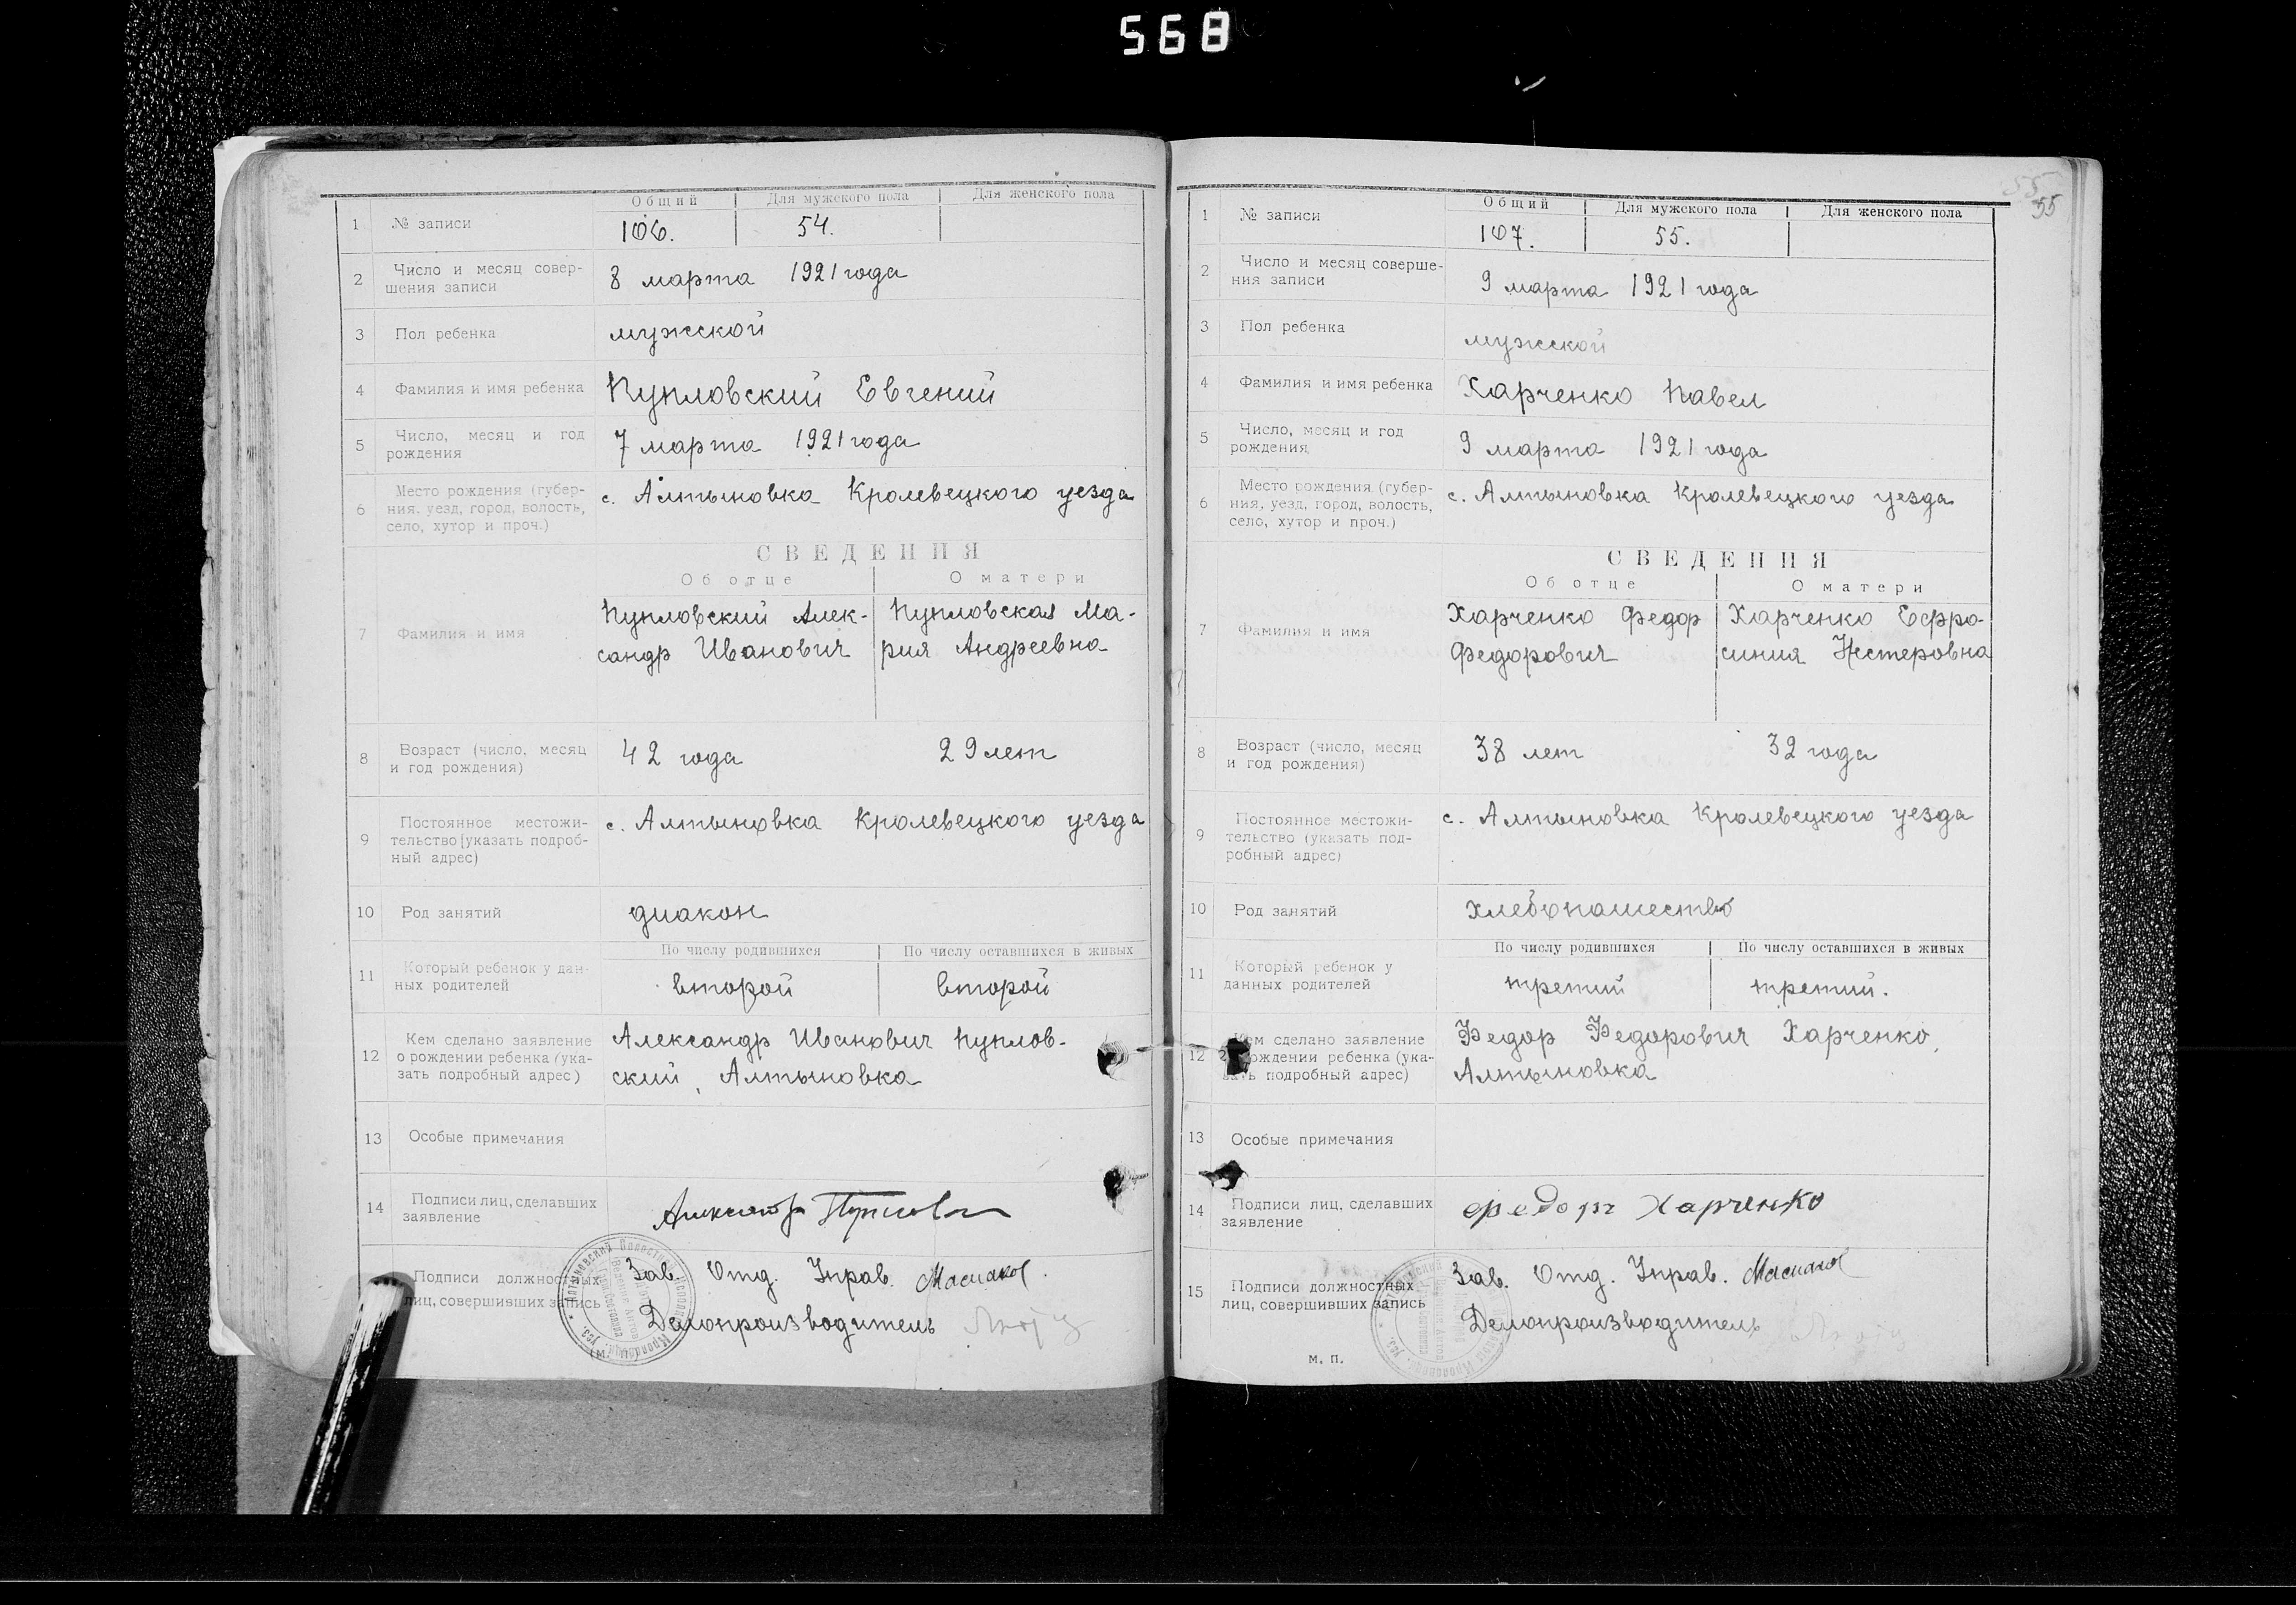 568
Общий Для мужского пола Для женского пола
1 № записи 106. 54.
2 Число и месяц совер-
шения записи 8 марта 1921 года
3 Пол ребенка мужской
4 Фамилия и имя ребенка Пупловский Евгений
5 Число, месяц и год
рождения 7 марта 1921 года
6 Место рождения (губер-
ния, уезд, город, волость,
село, хутор и проч.) с. Алтыновка Кролевецкого уезда
СВЕДЕНИЯ
Об отце О матери
7 Фамилия и имя Пупловский Алек- Пупловская Ма-
сандр Иванович рия Андреевна
8 Возраст (число, месяц
и год рождения) 42 года 29 лет
9 Постоянное местожи-
тельство (указать подроб-
ный адрес) с. Алтыновка Кролевецкого уезда
10 Род занятий диакон
По числу родившихся По числу оставшихся в живых
11 Который ребенок у дан-
ных родителей второй второй
12 Кем сделано заявление
о рождении ребенка (ука-
зать подробный адрес) Александр Иванович Пуплов-
ский, Алтыновка
13 Особые примечания
14 Подписи лиц, сделавших
заявление
Подписи должностных
лиц, совершивших запись Зав. Отд. Управ.
Делопроизводитель
55
55
Общий Для мужского пола Для женского пола
1 № записи 107. 55.
2 Число и месяц соверше-
ния записи 9 марта 1921 года
3 Пол ребенка мужской
4 Фамилия и имя ребенка Харченко Павел
5 Число, месяц и год
рождения 9 марта 1921 года
6 Место рождения (губер-
ния, уезд, город, волость,
село, хутор и проч.) с. Алтыновка Кролевецкого уезда
СВЕДЕНИЯ
Об отце О матери
7 Фамилия и имя Харченко Федор Харченко Ефро-
Федорович синия Нестеровна
8 Возраст (число, месяц
и год рождения) 38 лет 32 года
9 Постоянное местожи-
тельство (указать под-
робный адрес) с. Алтыновка Кролевецкого уезда
10 Род занятий хлебопашество
По числу родившихся По числу оставшихся в живых
11 Который ребенок у
данных родителей третий третий.
12 Кем сделано заявление
рождении ребенка (ука-
зать подробный адрес) Федор Федорович Харченко,
Алтыновка
13 Особые примечания
14 Подписи лиц, сделавших
заявление Федоръ Харченко
15 Подписи должностных
лиц, совершивших запись Зав. Отд. Управ.
Делопроизводитель
м. п.